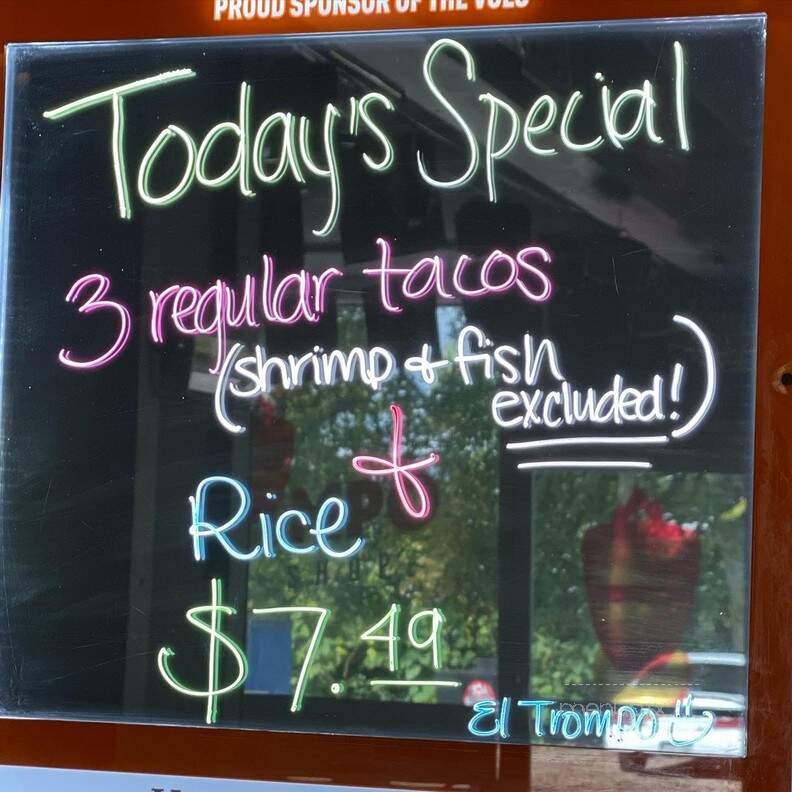 PROUD SPONSOR OF THE VOLS
Today's Special
3 regular tacos
(shrimp & fish
excluded!)
&
Rice
$7.49
El Trompo